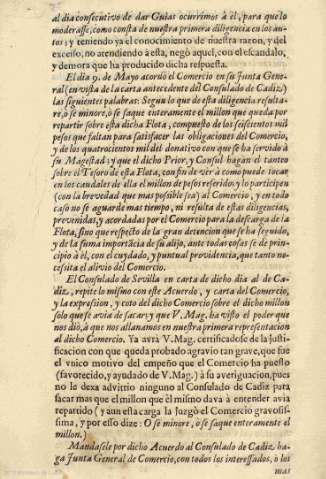 al dia consecutivo de dar Guias ocurrimos à él, para que lo
moderasse, como consta de nuestra primera diligencia en los au-
tos; y teniendo ya el conocimiento de nuestra razon, y del
excesso, no atendiendo à esta, negò aquel, con el escandalo,
y demora que ha producido dicha respuesta.
El dia 9. de Mayo acordò el Comercio en su Junta Gene-
ral (en vista de la carta antecedente del Consulado de Cadiz)
las siguientes palabras: Segun lo que de esta diligencia resulta-
re, ò se minore, ò se saque enteramente el millon que queda por
repartir sobre esta dicha Flota, compuesto de los seiscientos mil
pesos que faltan para satisfacer las obligaciones del Comercio,
y de los quatrocientos mil del donativo con que se ha servido à
su Magestad: y que el dicho Prior, y Consul hagan el tanteo
sobre el Tesoro de esta Flota, con fin de ver à como puede tocar
en los caudales de alla el millon de pesos referido: y lo participen
(con la brevedad que mas possible sea) al Comercio, y en todo
caso no se aguarde mas tiempo, ni resulta de estas diligencias,
prevenidas, y acordadas por el Comercio para la descarga de la
Flota, sino que respecto de la gran detencion que se ha seguido,
y de la suma importancia de su alijo, ante todas cosas se dè prin-
cipio à el, con el cuydado, y puntual providencia, que tanto ne-
cessita el alivio del Comercio.
El Consulado de Sevilla en carta de dicho dia al de Ca-
diz, repite lo mismo con este Acuerdo, y carta del Comercio,
y la expression, y coto del dicho Comercio sobre el dicho millon
solo que se avia de sacar: y que V. Mag. ha visto el poder que
nos diò, à que nos allanamos en nuestra primera representacion
al dicho Comercio. Ya avrà V. Mag. certificadose de la justi-
ficacion con que queda probado agravio tan grave, que fue
el vnico motivo del empeño que el Comercio ha puesto
(favorecido, y ayudado de V. Mag.) à su averiguacion, pues
no le dexa advitrio ninguno al Consulado de Cadiz para
sacar mas que el millon que èl mismo dava à entender avia
repartido (y aun esta carga la Juzgò el Comercio gravosis-
sima, y por esso dize: O se minore, ò se saque enteramente el
millon.)
Mandasele por dicho Acuerdo al Consulado de Cadiz, ha-
ga Junta General de Comercio, con todos los interessados, ò los
mas